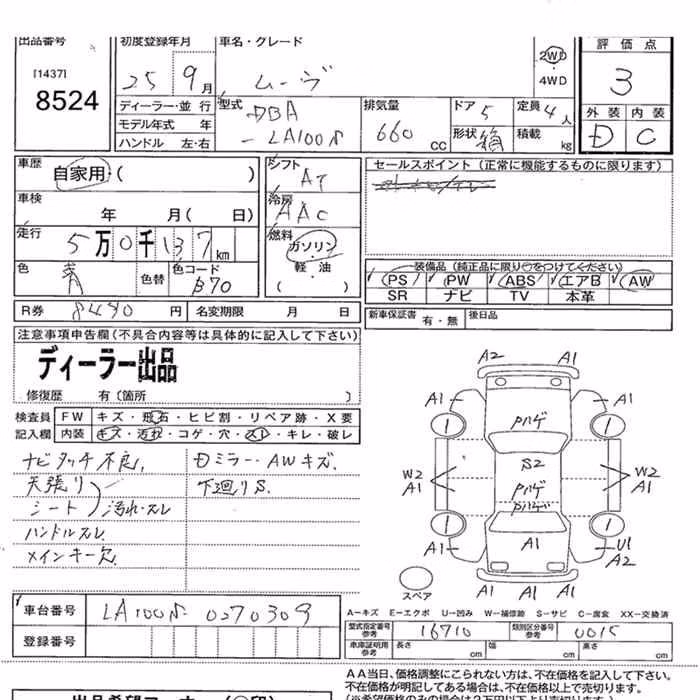 出品番号 初度登録年月 車名・グレード 評価点
[1437]
8524
25 9月 ムーヴ 2WD 3
4WD
ディーラー・並行 型式 DBA 排気量 ドア 5 定員 4人 外装 内装
モデル年式 年 -LA100S 660 CC 形状 箱 積載 kg D C
ハンドル 左・右
車歴 自家用・( ) シフト AT セールスポイント(正常に機能するものに限ります)
車検 年 月( 日) 冷房 AAC
走行 5万0千137km 燃料 ガソリン・軽油 ( ・ )
色 青 色替 色コード B70
装備品(純正品に限り○をつけてください)
PS PW ABS エアB AW
SR ナビ TV 本革
R券 8480円 名変期限 月 日 新車保証書 有・無 後日品
注意事項申告欄(不具合内容等は具体的に記入して下さい)
ディーラー出品
修復歴 有(箇所 )
検査員 FW キズ・飛石・ヒビ割・リペア跡・X要
記入欄 内装 キズ・汚れ・コゲ・穴・スレ・キレ・破レ
ナビタッチ不良, Dミラー・AWキズ.
天張り 下廻りS.
シート 汚れ・スレ
ハンドルスレ
メインキー欠
A2 A1
A1 A1
1 Pハゲ 1
S2
W2 Pハゲ W2
A1 Pハゲ A1
1 1
A1 A1 U1
A2
A1 A1 A1
スペア
A-キズ E-エクボ U-凹み W-補修跡 S-サビ C-腐食 XX-交換済
車台番号 LA100S-0270309
型式指定番号 参考 16710 類別区分番号 参考 0015
登録番号 車庫証明用 参考 長さ cm 幅 cm 高さ cm
AA当日、価格調整にこられない方は、不在価格を記入して下さい。
不在価格が明記してある場合は、不在価格以上で売切ります。